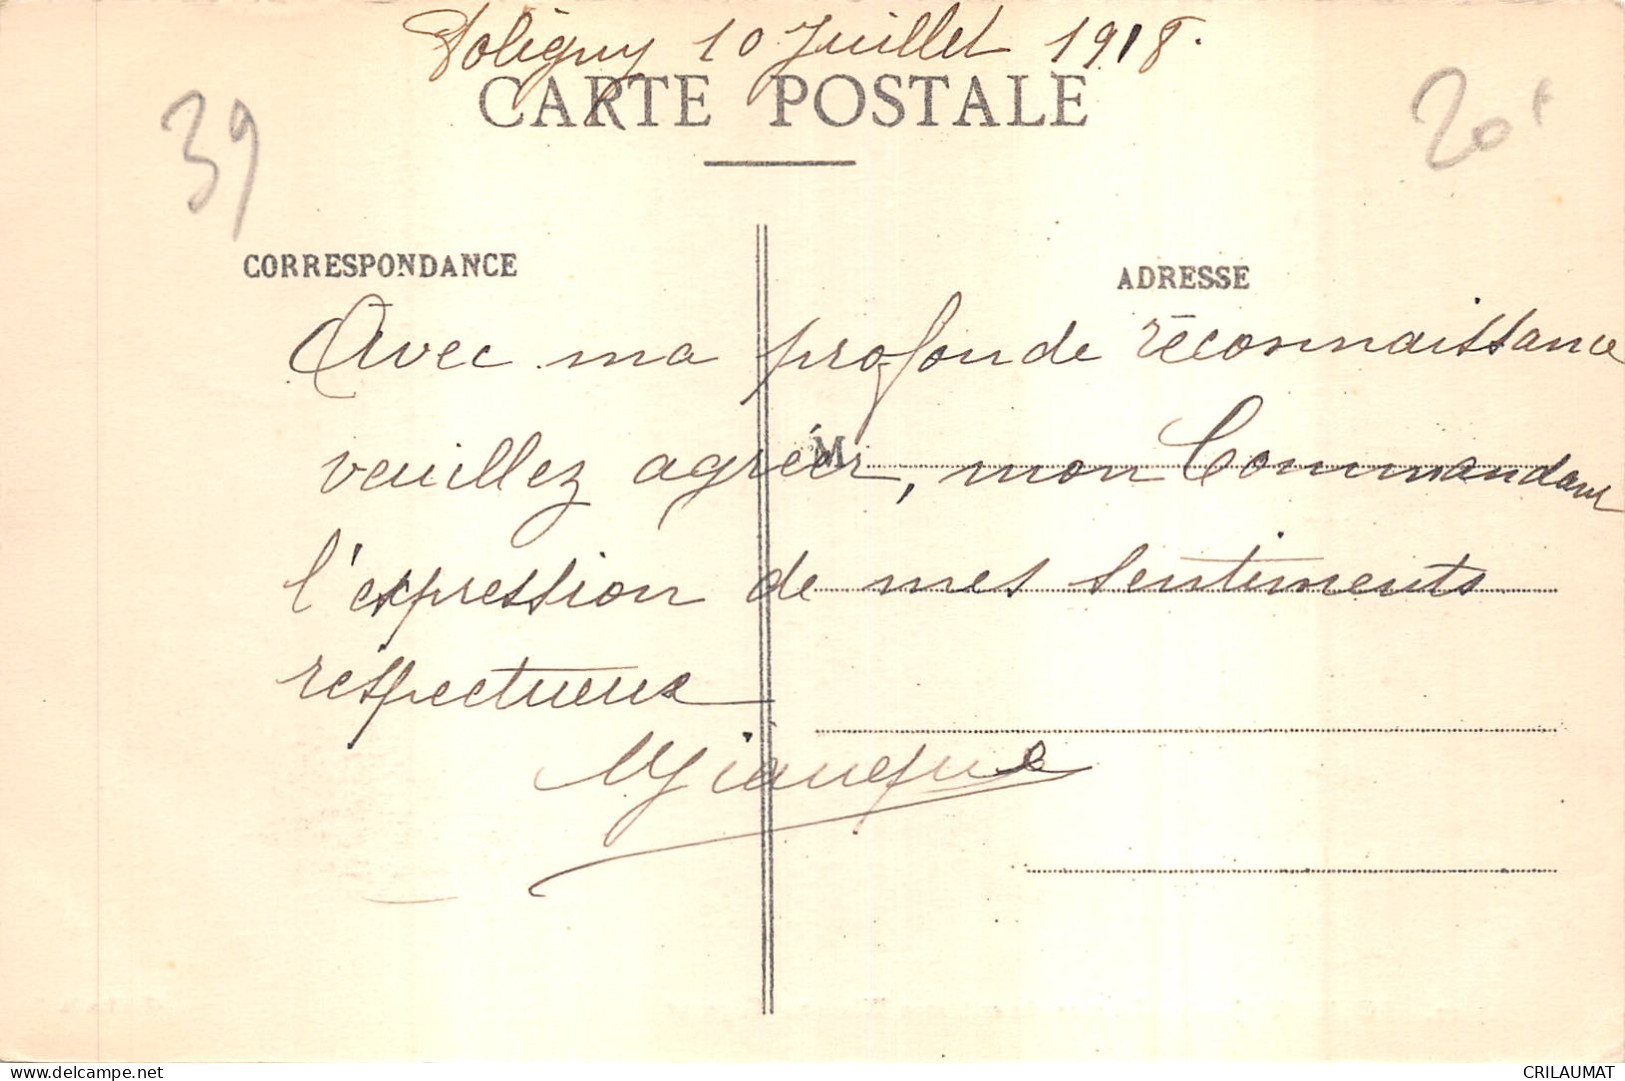 Poligny 10 Juillet 1918.
CARTE POSTALE
39
20F
CORRESPONDANCE
ADRESSE
Avec ma profonde réconnaissance
M
veuillez agréer, mon Commandant
l'expression de mes sentiments
respectueux
www.delcampe.net
CRILAUMAT